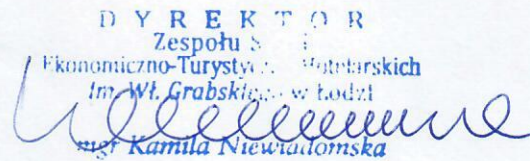 DYREKTOR
Zespołu
Ekonomiczno-Turystycz Hotelarskich
im. Wł. Grabskiego w Łodzi
mgr Kamila Niewiadomska